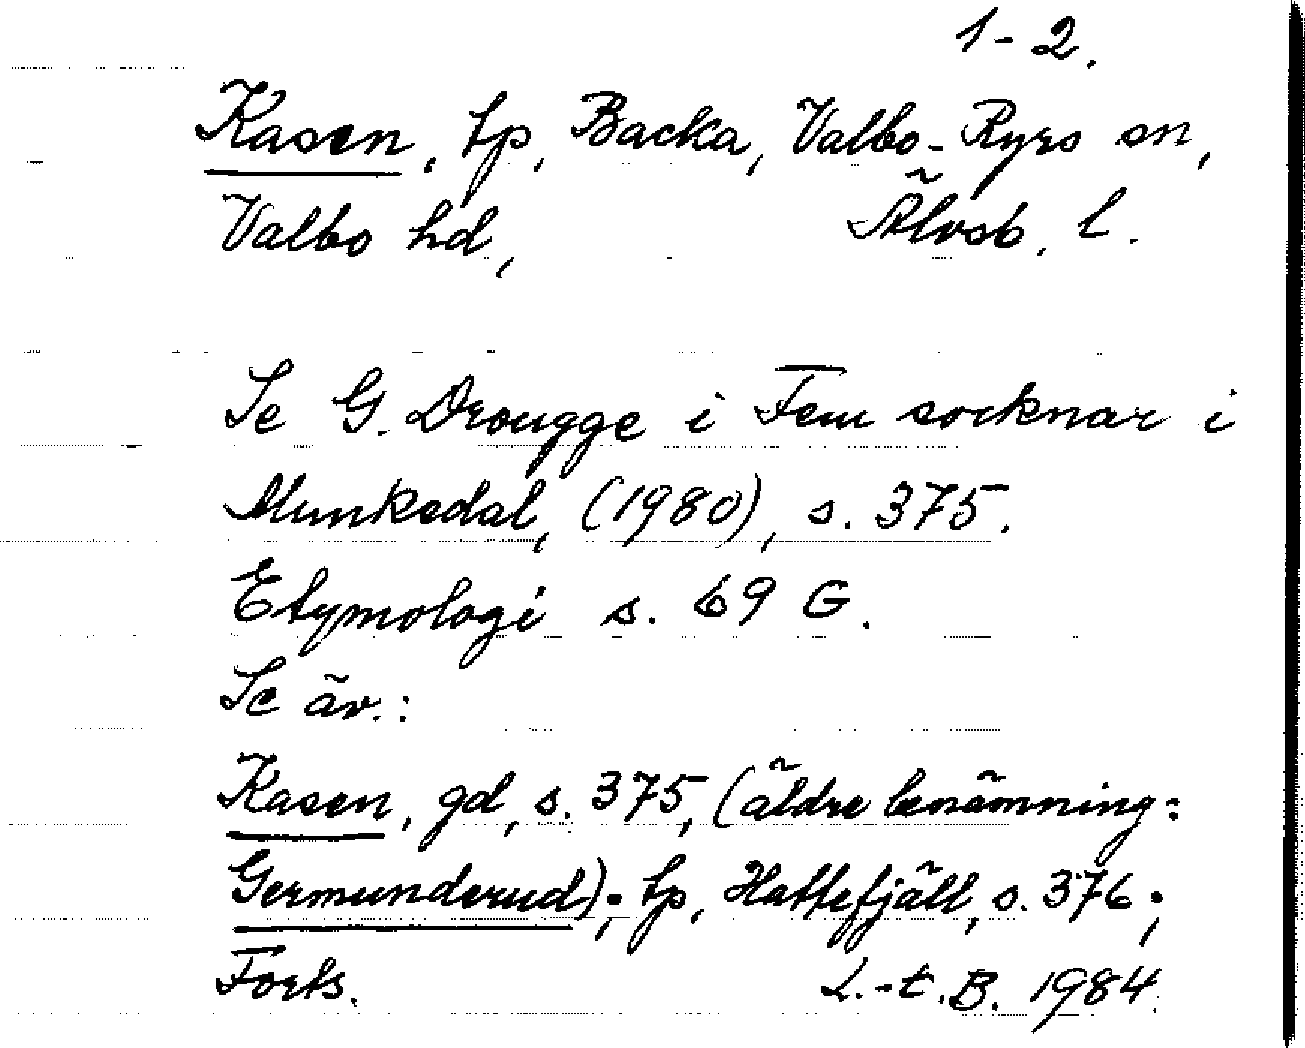 1-2.
Kasen, tp, Backa, Valbo-Ryrs sn,
Valbo hd, Älvsb. l.
Se G. Drougge i Fem socknar i
Munkedal, (1980), s. 375.
Etymologi s. 69 G.
Se äv.:
Kasen, gd, s. 375, (äldre benämning:
Germunderud); tp, Hattefjäll, s. 376;
Forts. L.-t. B. 1984.